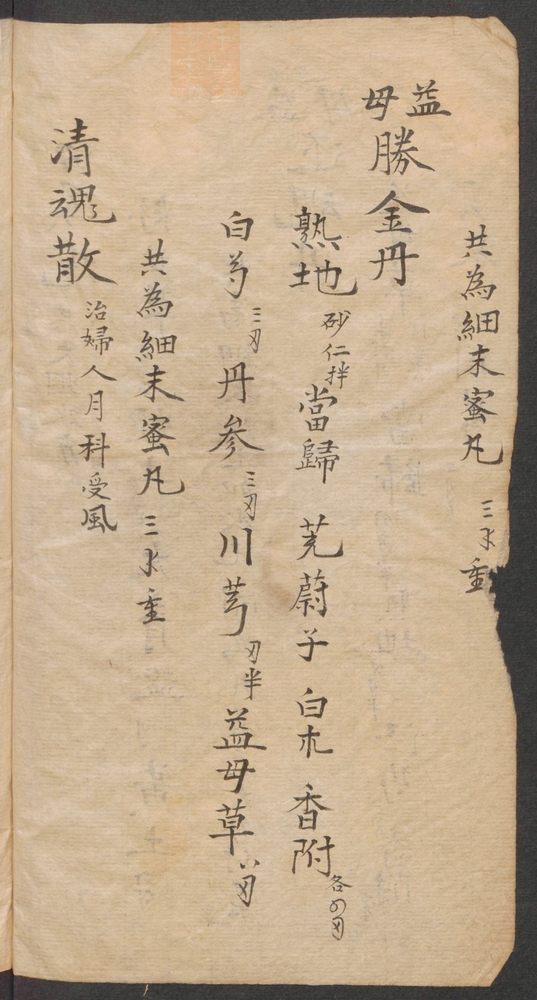 共為細末蜜丸 三水重
益母勝金丹
熟地砂仁拌 當歸 茺蔚子 白朮 香附各四刄
白芍三刄 丹參三刄 川芎刄半 益母草八刄
共為細末蜜丸三水重
清魂散 治婦人月科受風